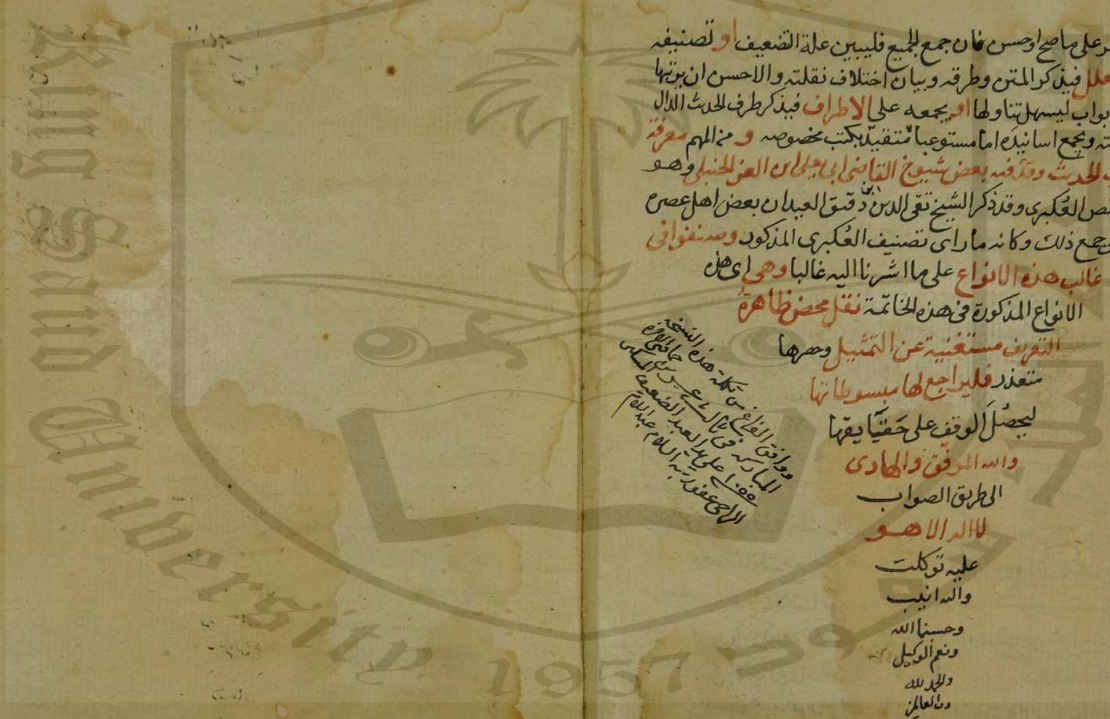 على ما صح او حسن فان جمع الجميع فليبين علة الضعيف او تصنيفه
فيذكر المتن وطرقه وبيان اختلاف نقلته والاحسن ان يرتبها
ليسهل تناولها او يجمعه على الاطراف فيذكر طرف الحديث الدال
ويجمع اسانيده اما مستوعبا متقيدا بكتب مخصوصه و من المهم معرفة
الحديث وقد صنف فيه بعض شيوخ القاضى ابى يعلى ابن الفرا الحنبلى وهو
العُكبرى وقد ذكر الشيخ تقى الدين ابن دقيق العيد ان بعض اهل عصره
جمع ذلك وكانه ما راى تصنيف العُكبرى المذكور وصنفوا فى
غالب هذه الانواع على ما اشرنا اليه غالبا وهى اى هذه
الانواع المذكورة فى هذه الخاتمة نقل محض ظاهرة
التعريف مستغنية عن التمثيل وحصرها
متعذر فليراجع لها مبسوطاتها
ليحصُلَ الوقف على حَقَايقها
والله الموفق والهادى
الى طريق الصواب
لا اله الا هو
عليه توكلت
واليه انيب
وحسبنا الله
ونعم الوكيل
والحمد لله
رب العالمين
ووافق الفراغ من تكملة هذه النسخه
المباركه فى
١٠٥٥ على يد العبد الضعيف
الراجى عفو ربه
King Saud University
1957